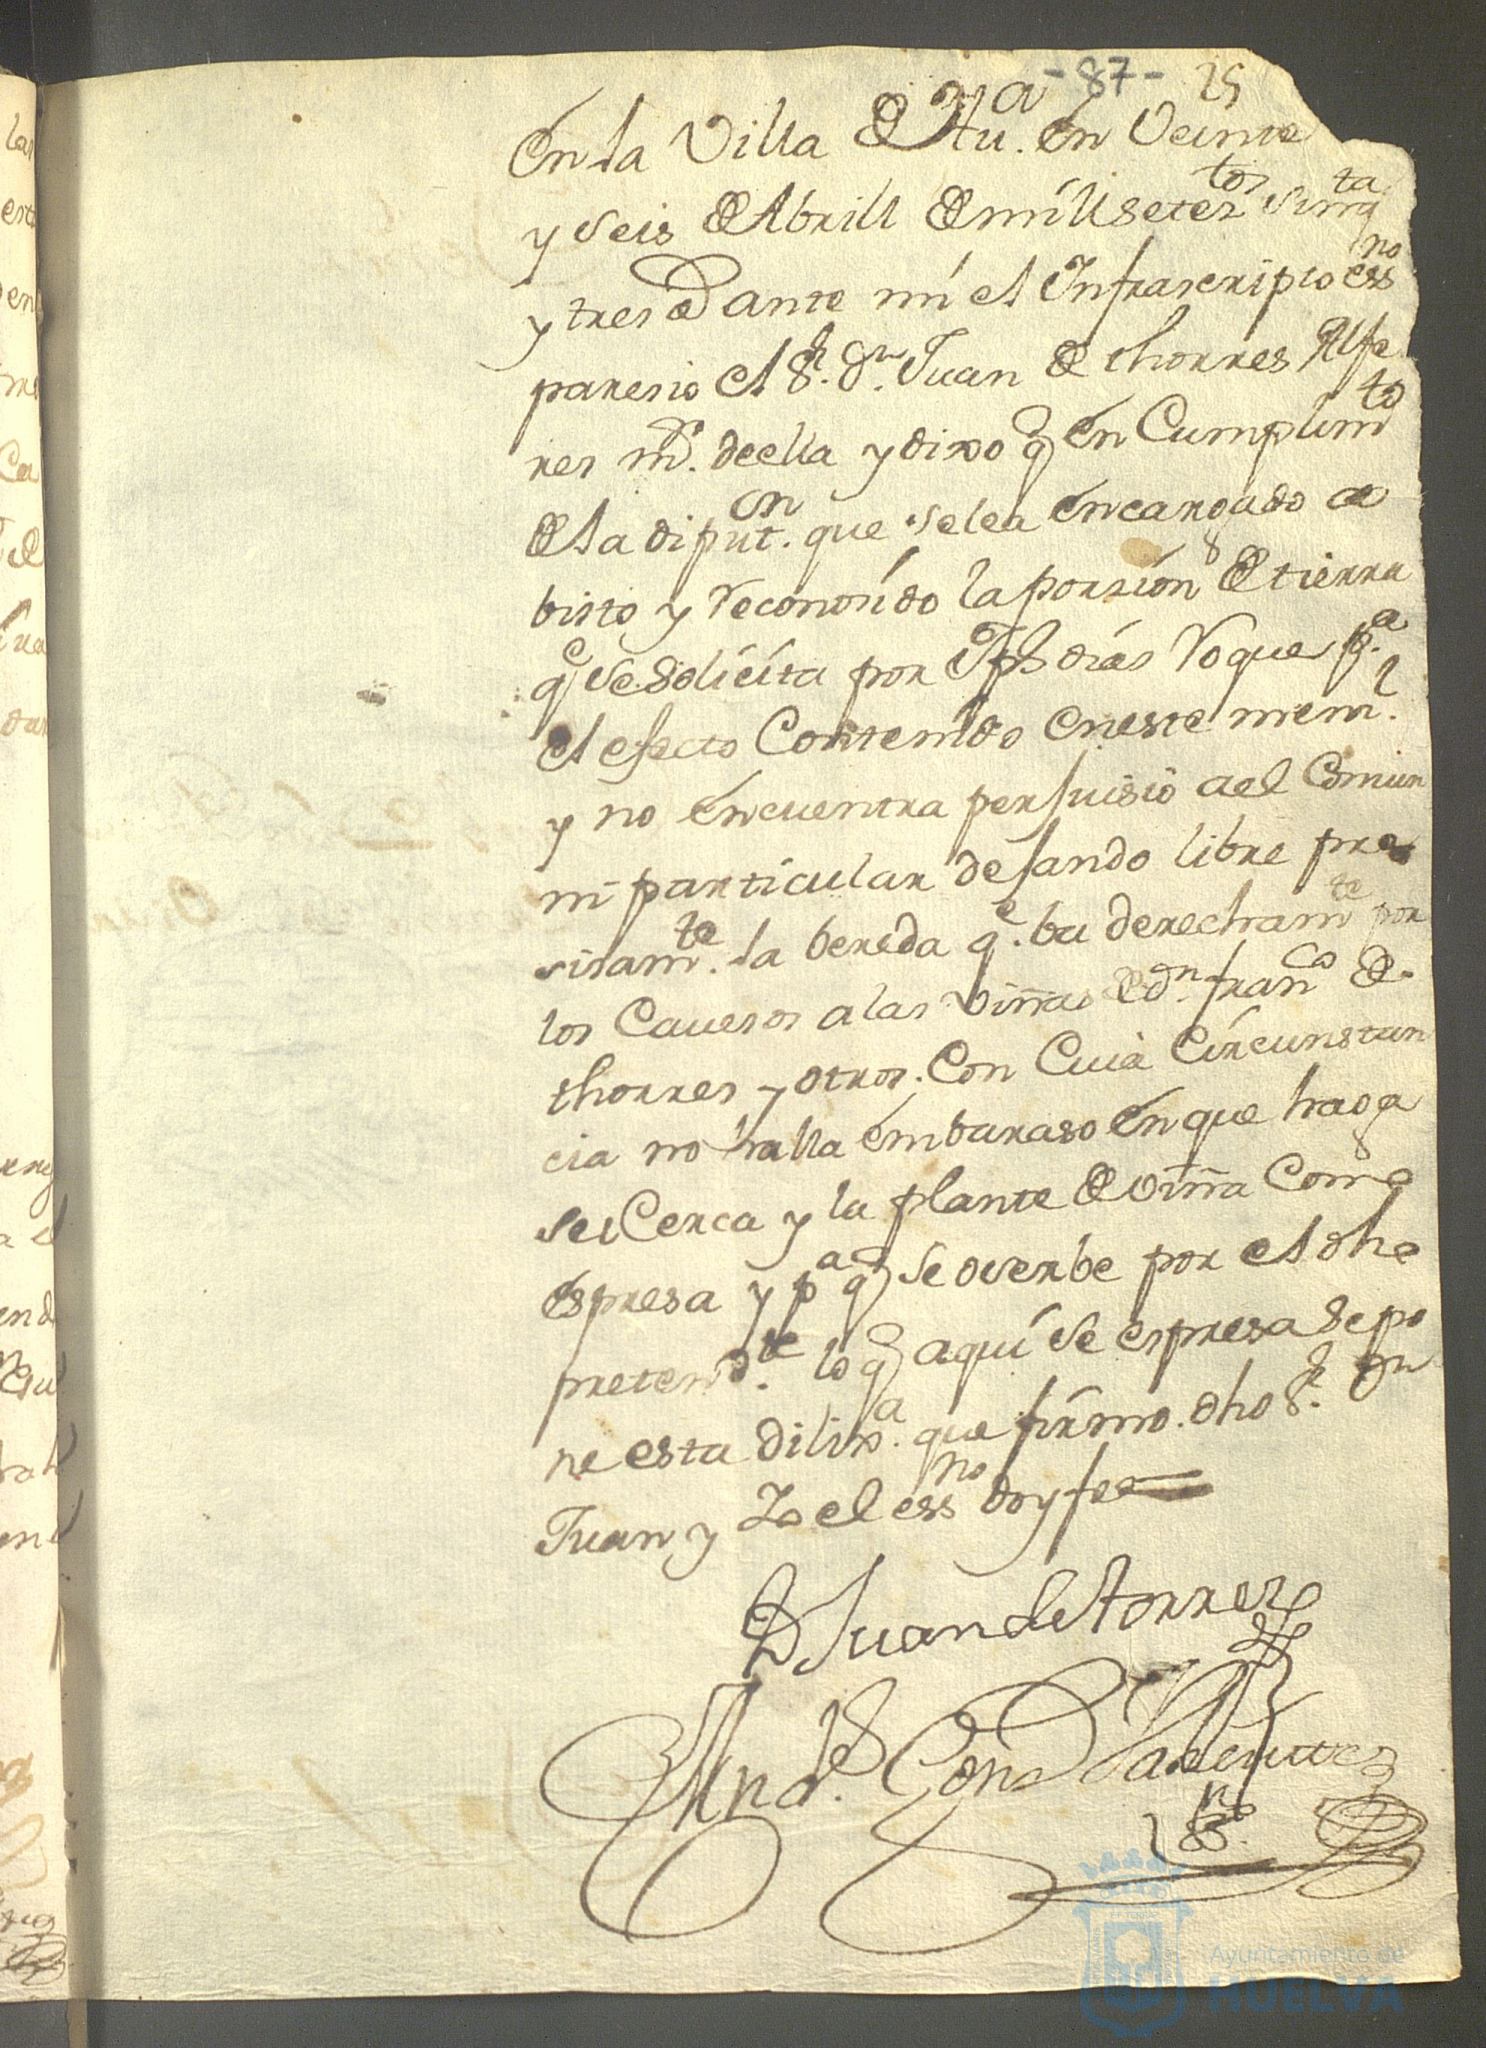 -87- 25
En la Villa de Hua. en Veinte
y seis de Abrill de mill seteztos sinqta
y tres ante mi el Infrascripto essno
paresio el Sr. Dn. Juan de thorres Alfe
res mr. de ella y dixo q en Cumplimto
de la diputon. que se le a encargado a
bisto y reconosido la porsion de tierra
qe se Solicita por Jph dias Roque pa.
el efecto Contenido en este meml.
y no encuentra perjuisio a el Comun
ni particular dejando libre pre
sisamte. la bereda qe. ba derechamte por
los Cavesos a las viñas de dn. franco de
thorres y otros. Con Cuia Circunstan
cia no halla embaraso en que haga
se Cerca y la plante de viña Como
espresa y pa q se overbe por el dho
pretendte. lo q aqui se espresa Se po
ne esta dilixa. que firmo. dho Sr. Dn
Juan y Yo el essno doy fee
D Juan de torres
Andrs. Gonz Valiente
Ayuntamiento de
HUELVA